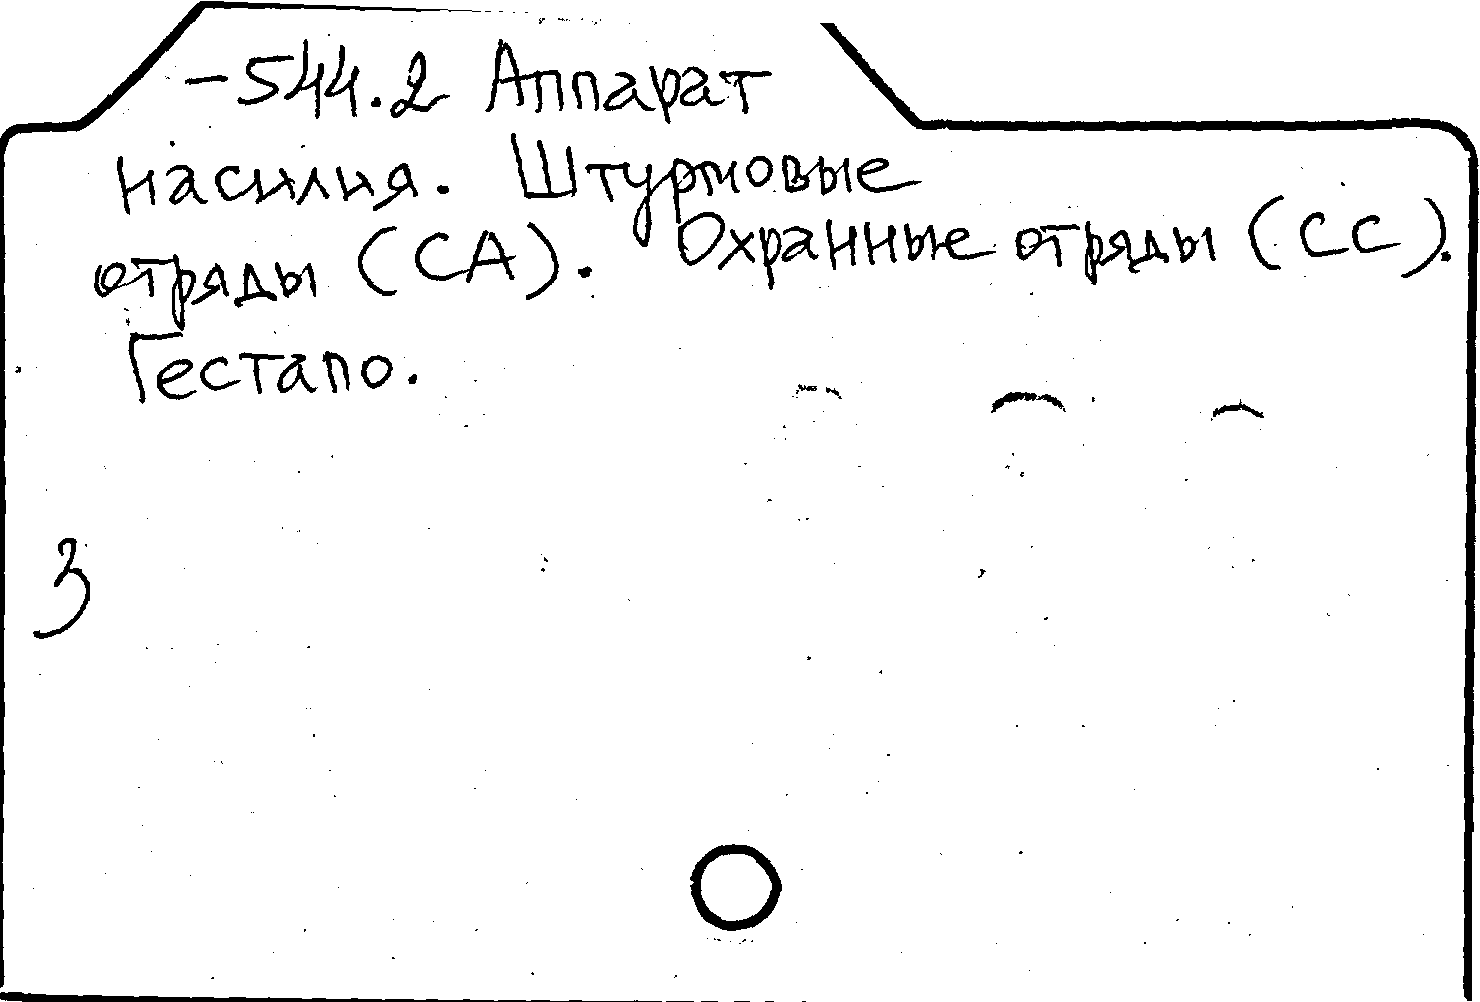 -544.2 Аппарат
насилия. Штурмовые
отряды (СА). Охранные отряды (СС).
Гестапо.
3